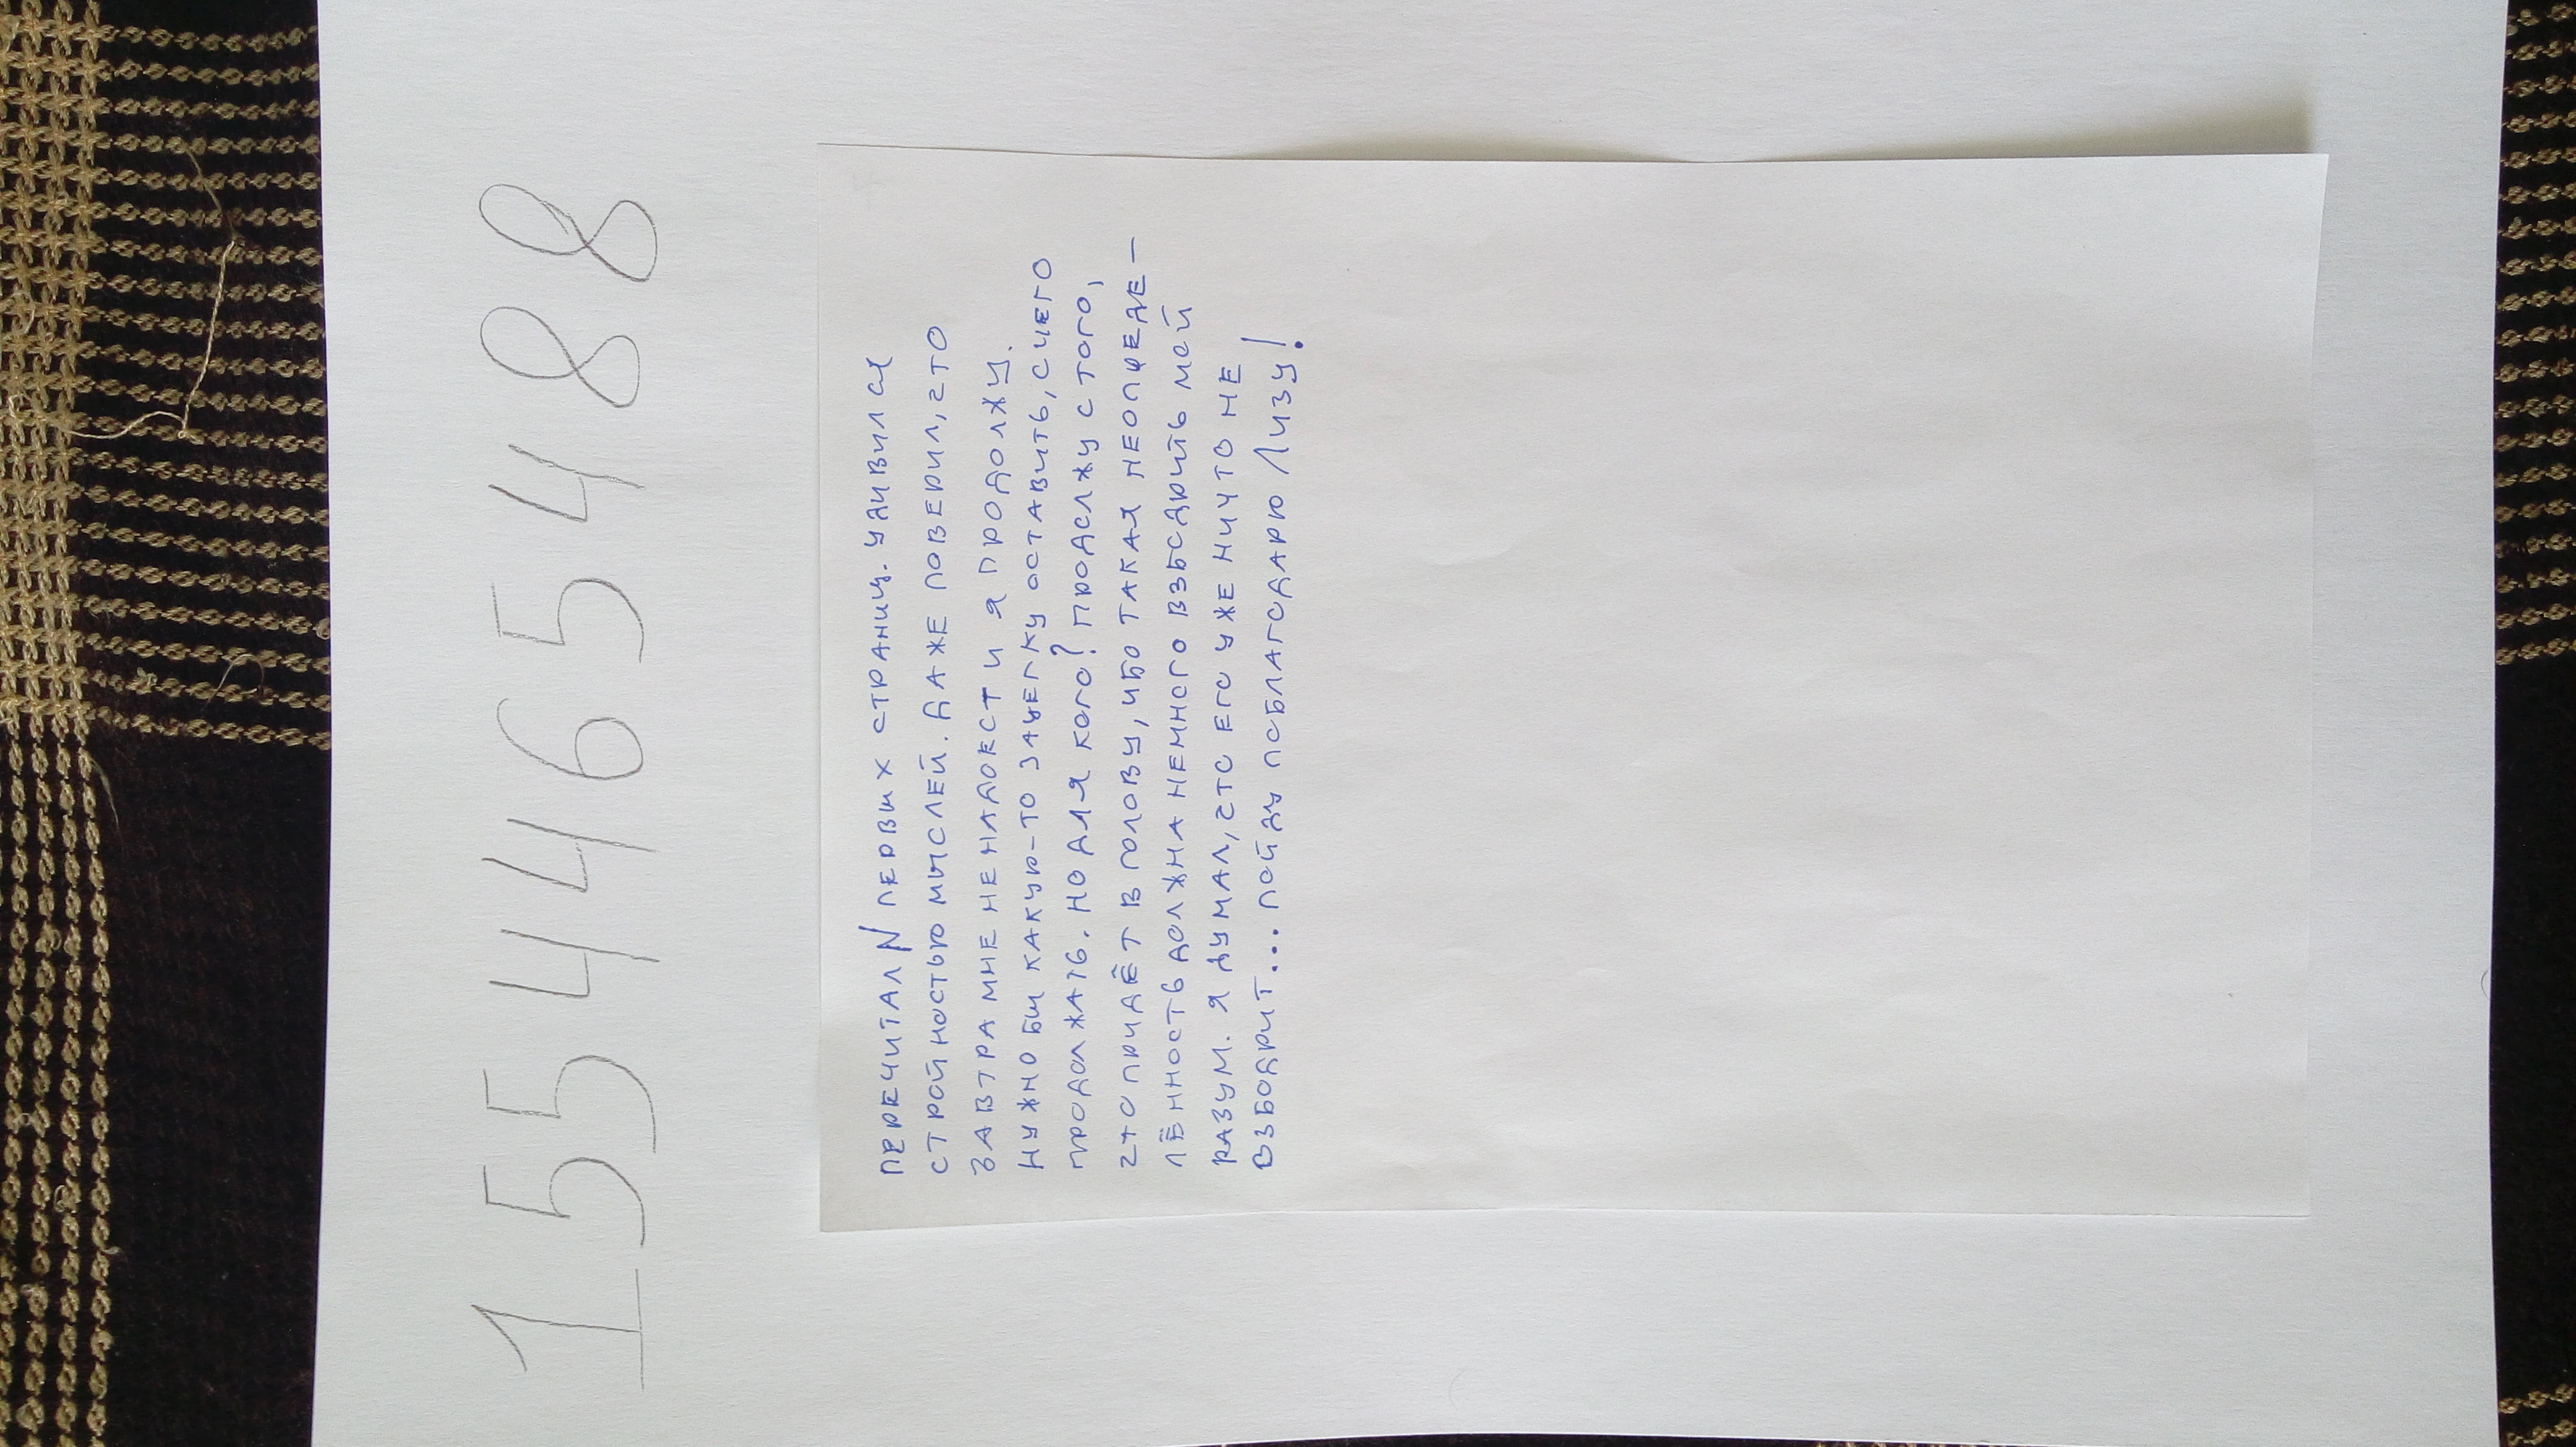 155465488
ПЕРЕЧИТАЛ N ПЕРВЫХ СТРАНИЦ. УДИВИЛСЯ
СТРОЙНОСТЬЮ МЫСЛЕЙ. ДАЖЕ ПОВЕРИЛ, ЧТО
ЗАВТРА МНЕ НЕ НАДОЕСТ И Я ПРОДОЛЖУ.
НУЖНО БЫ КАКУЮ-ТО ЗАЦЕПКУ ОСТАВИТЬ, С ЧЕГО
ПРОДОЛЖАТЬ. НО ДЛЯ КОГО? ПРОДОЛЖУ С ТОГО,
ЧТО ПРИДЁТ В ГОЛОВУ, ИБО ТАКАЯ НЕОПРЕДЕ-
ЛЁННОСТЬ ДОЛЖНА НЕМНОГО ВЗБОДРИТЬ МОЙ
РАЗУМ. Я ДУМАЛ, ЧТО ЕГО УЖЕ НИЧТО НЕ
ВЗБОДРИТ... ПОЙДУ ПОБЛАГОДАРЮ ЛИЗУ!